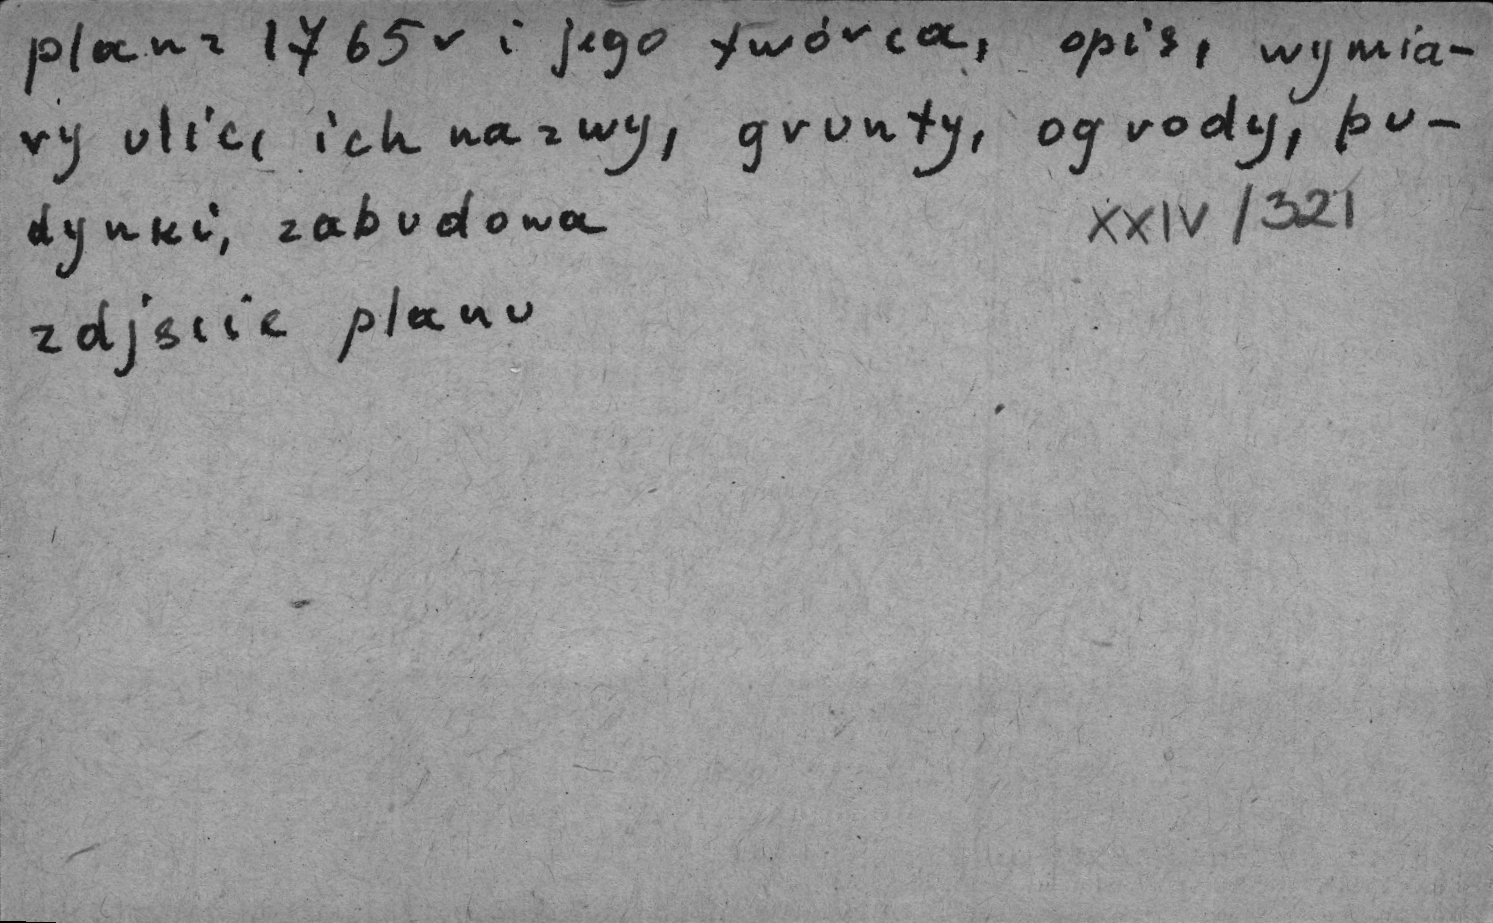 plan z 1765 r i jego twórca, opis, wymia-
ry ulic, ich nazwy, grunty, ogrody, bu-
dynki, zabudowa XXIV/321
zdjęcie planu